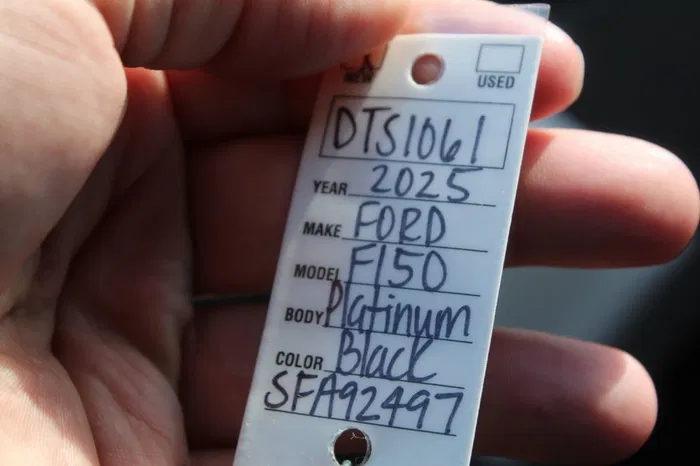 NEW USED
DTS1061
YEAR 2025
MAKE FORD
MODEL F150
BODY Platinum
COLOR Black
SFA92497